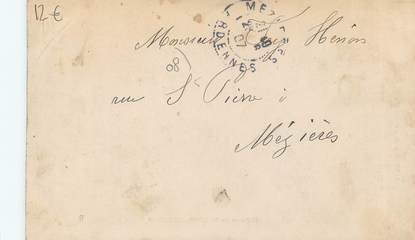 12 €
MÉZIÈRES
ARDENNES
Monsieur Hénon
08
rue St Pierre à
Mézières